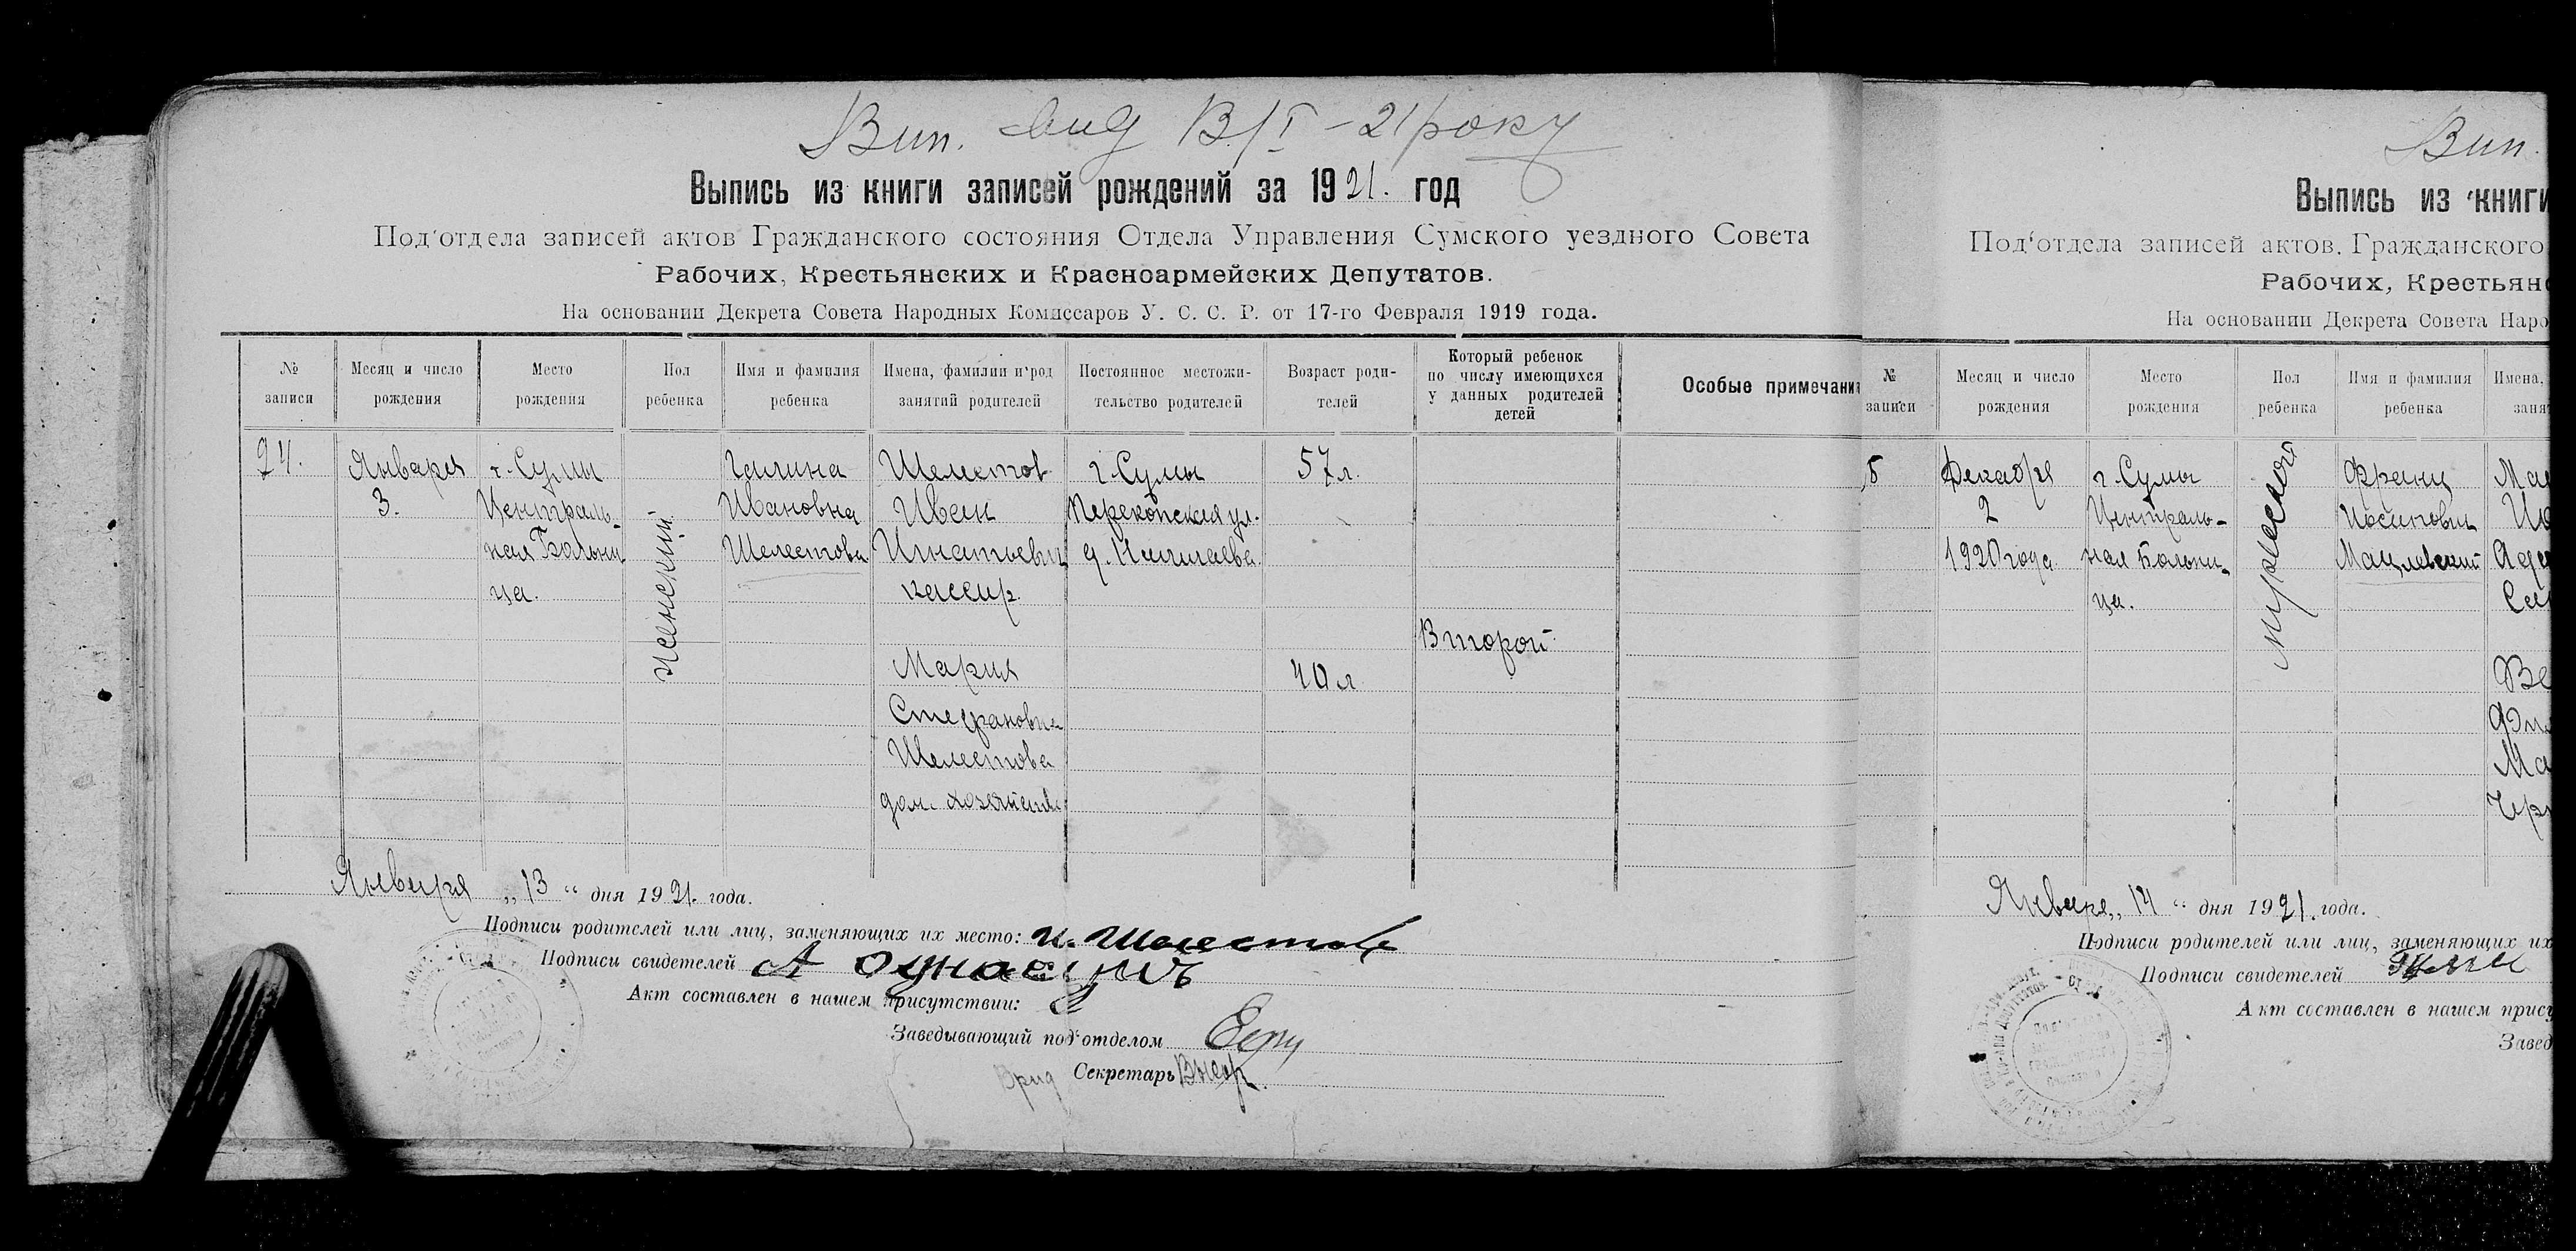 Вип. вид В/I - 21 року
Выпись из книги записей рождений за 1921. год
Под'отдела записей актов Гражданского состояния Отдела Управления Сумского уездного Совета
Рабочих, Крестьянских и Красноармейских Депутатов.
На основании Декрета Совета Народных Комиссаров У. С. С. Р. от 17-го Февраля 1919 года.
№ записи
Месяц и число рождения
Место рождения
Пол ребенка
Имя и фамилия ребенка
Имена, фамилии и род занятий родителей
Постоянное местожительство родителей
Возраст родителей
Который ребенок по числу имеющихся у данных родителей детей
Особые примечани
24.
Января
3.
г. Сумы
Централь-
ная Больни
ца.
женский
Галина
Ивановна
Шелестова
Шелестов
Иван
Игнатьевич
кассир.
Мария
Стефановна
Шелестова
дом. хозяйство
г. Сумы
Перекопская ул.
57 л.
40 л
Второй
Января „13“ дня 1921. года.
Подписи родителей или лиц, заменяющих их место: И. Шелестов
Подписи свидетелей А
Акт составлен в нашем присутствии:
Заведывающий под'отделом
Врид Секретарь
Вип.
Выпись из книги
Под'отдела записей актов. Гражданского
Рабочих, Крестьянс
На основании Декрета Совета Наро
№ записи
Месяц и число рождения
Место рождения
Пол ребенка
Имя и фамилия ребенка
Имена,
заня
5
Декабря
2
1920 года
г. Сумы
Централь-
ная Больни-
ца.
мужеского
Франц
Иосипович
Мацлевский
Января „14“ дня 1921. года.
Подписи родителей или лиц, заменяющих их
Подписи свидетелей
Акт составлен в нашем прису
Завед